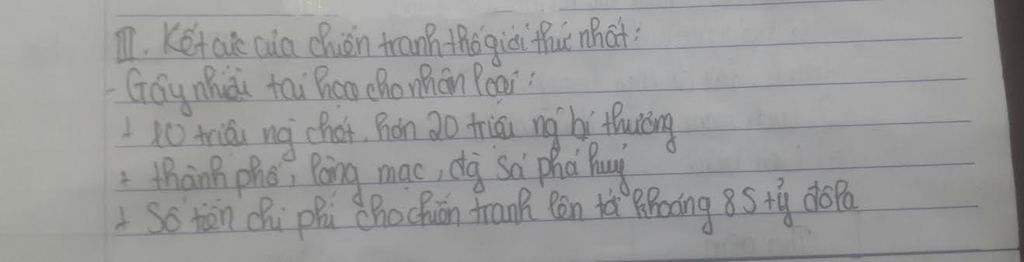 III. Kết cục của chiến tranh thế giới thức nhất:
- Gây nhiều tai họa cho nhân loại:
+ 10 triệu ng chết, hơn 20 triệu ng bị thương
+ thành phố, làng mạc, đg sá phá huỷ
+ Số tiền chi phí cho chiến tranh lên tới khoảng 85 tỷ đôla